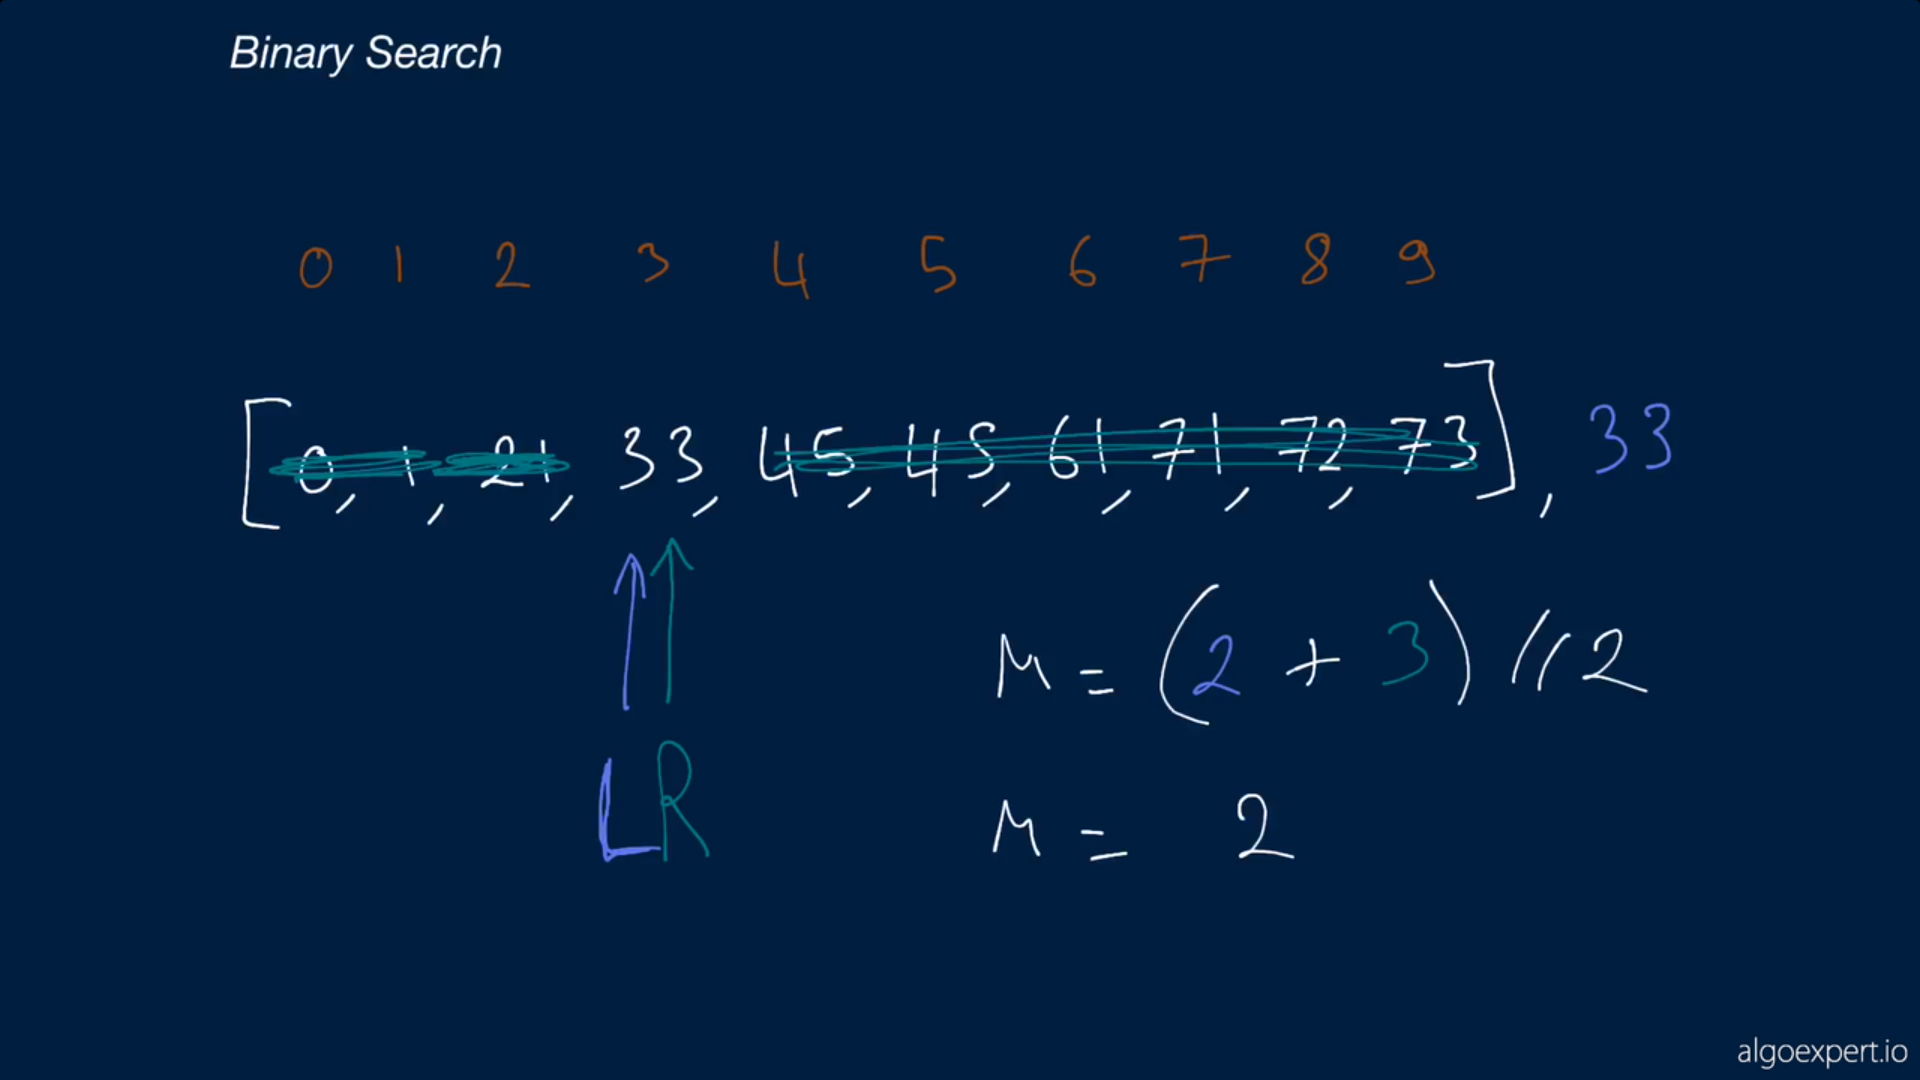 Binary Search
0 1 2 3 4 5 6 7 8 9
[0, 1, 21, 33, 45, 45, 61, 71, 72, 73], 33
M = (2 + 3) // 2
L R
M = 2
algoexpert.io